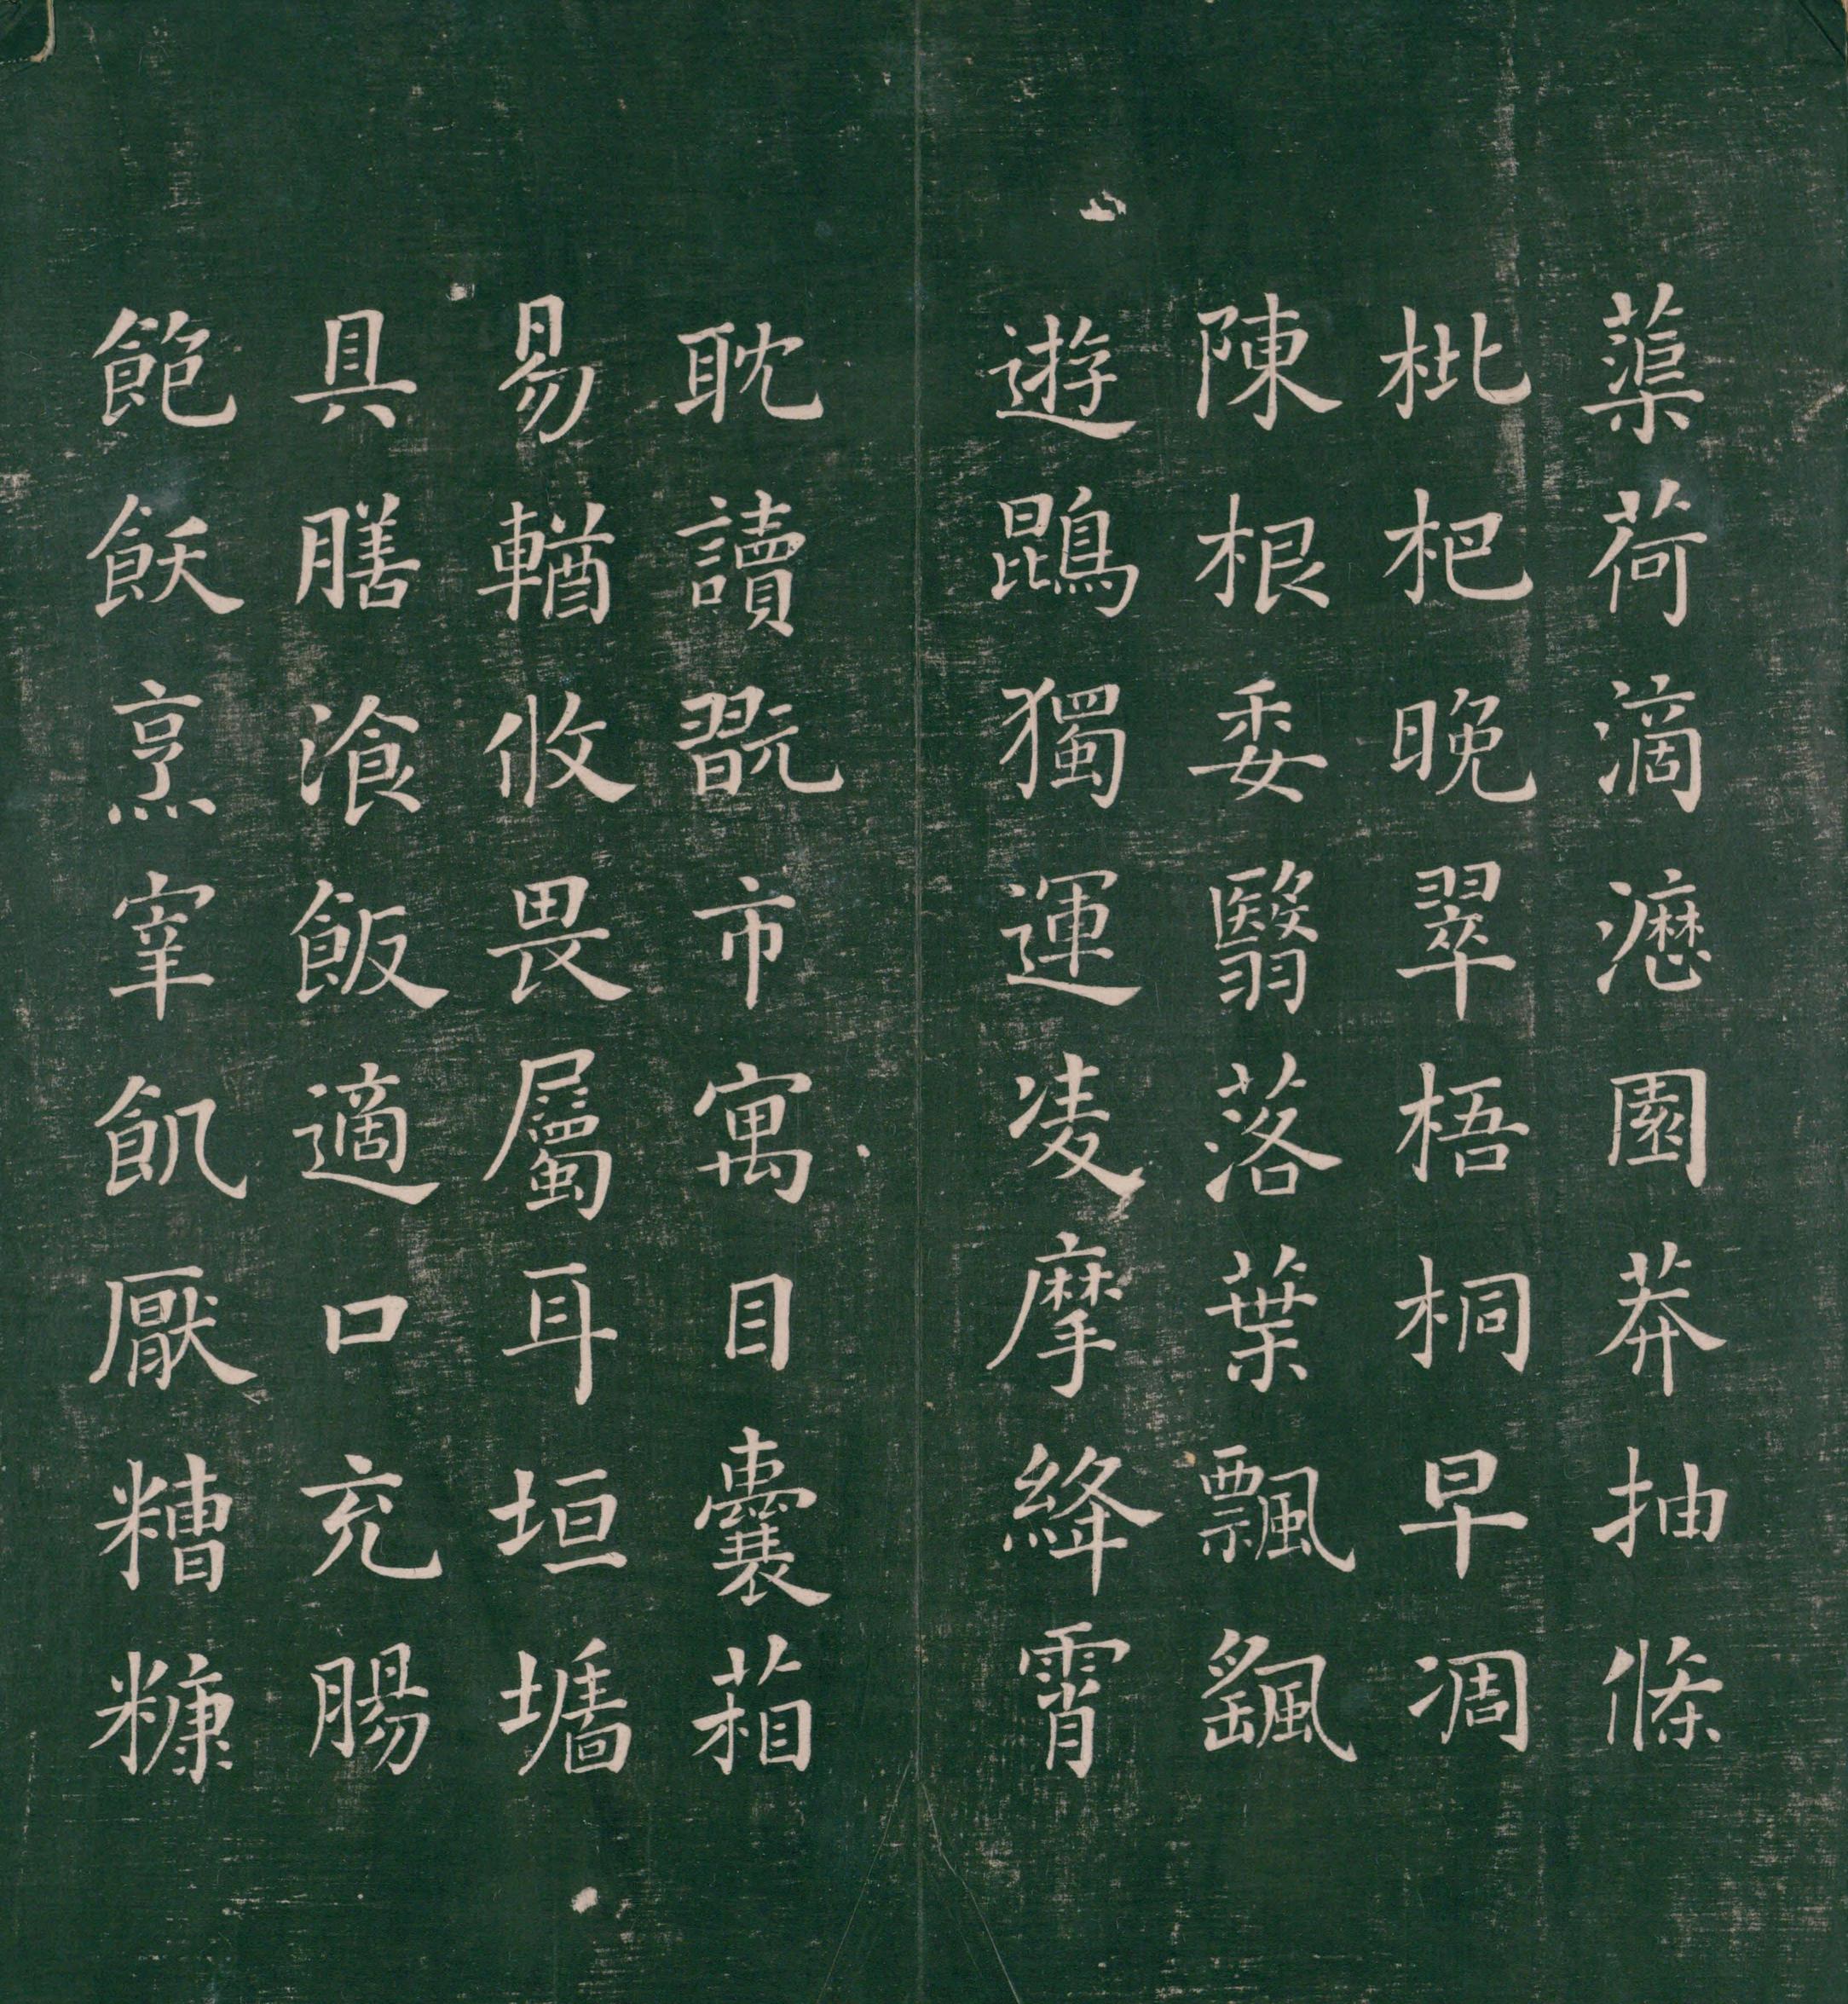 蕖荷滴瀝園莽抽條
枇杷晚翠梧桐早凋
陳根委翳落葉飄颻
遊鵾獨運凌摩絳霄
耽讀翫市寓目囊葙
易輶攸畏屬耳垣墻
具膳湌飯適口充腸
飽飫烹宰飢厭糟糠